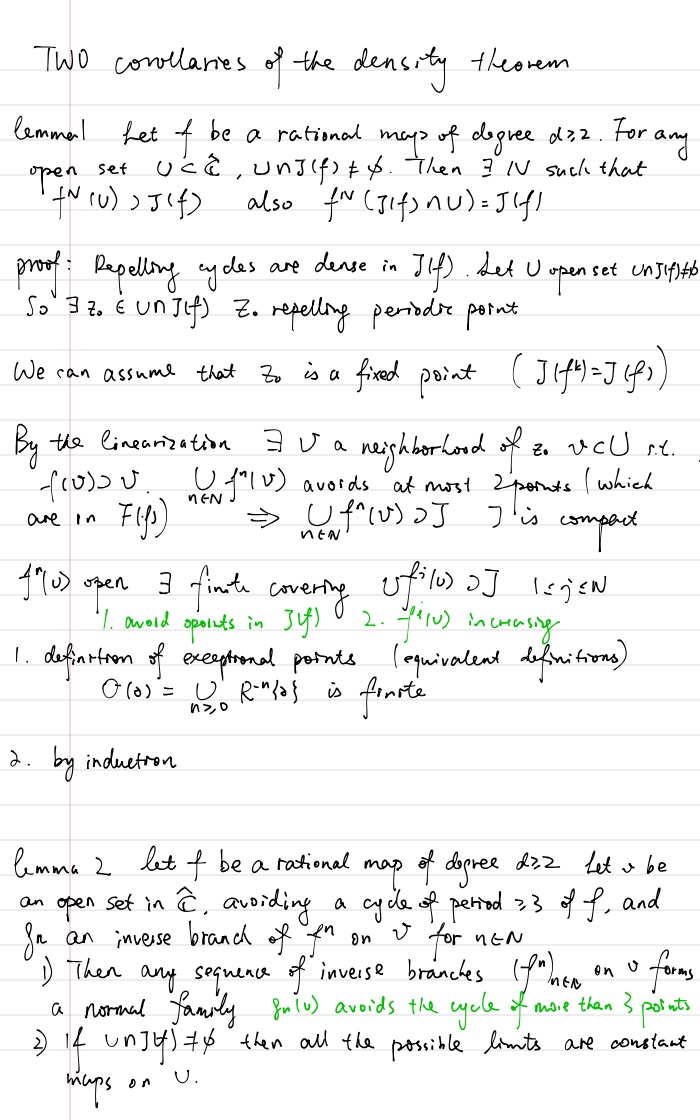 TWO corollaries of the density theorem
lemma1 Let f be a rational map of degree d≥2. For any
open set U⊂Ĉ, U∩J(f)≠∅. Then ∃N such that
f^N(U)⊃J(f) also f^N(J(f)∩U)=J(f)
proof: Repelling cycles are dense in J(f). Let U open set U∩J(f)≠∅
So ∃z₀∈U∩J(f) z₀ repelling periodic point
We can assume that z₀ is a fixed point (J(f^k)=J(f))
By the linearization ∃ V a neighborhood of z₀ V⊂U s.t.
f(V)⊃V. ⋃_{n∈N} f^n(V) avoids at most 2 points (which
are in F(f)) ⇒ ⋃_{n∈N} f^n(V)⊃J J is compact
f^n(V) open ∃ finite covering ⋃f^j(V)⊃J 1≤j≤N
1. avoid 0 points in J(f) 2. f^j(V) increasing
1. definition of exceptional points (equivalent definitions)
O(z) = ⋃_{n≥0} R^{-n}{z} is finite
2. by induction
lemma 2 let f be a rational map of degree d≥2 Let U be
an open set in Ĉ, avoiding a cycle of period ≥3 of f, and
g_n an inverse branch of f^n on U for n∈N
1) Then any sequence of inverse branches (f^n)_{n∈N} on U forms
a normal family g_n(U) avoids the cycle of more than 3 points
2) If U∩J(f)≠∅ then all the possible limits are constant
maps on U.